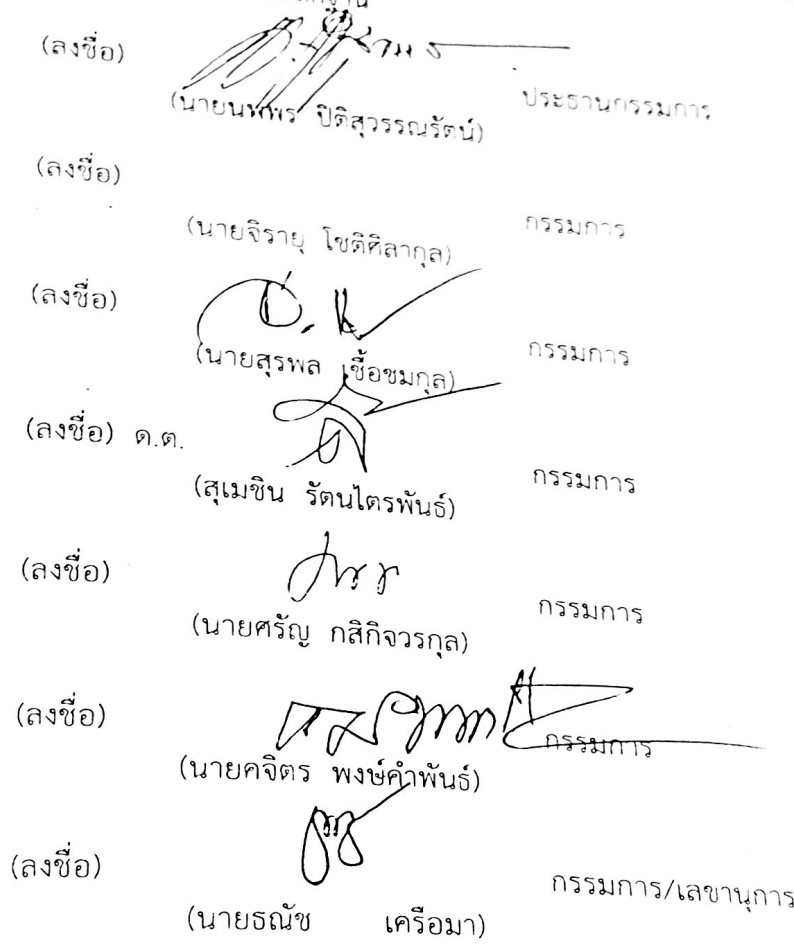 (ลงชื่อ) ประธานกรรมการ
(นายนพพร ปิติสุวรรณรัตน์)
(ลงชื่อ) กรรมการ
(นายจิรายุ โชติศิลากุล)
(ลงชื่อ) กรรมการ
(นายสุรพล เชื้อชมกุล)
(ลงชื่อ) ด.ต. กรรมการ
(สุเมชิน รัตนไตรพันธ์)
(ลงชื่อ) กรรมการ
(นายศรัญ กสิกิจวรกุล)
(ลงชื่อ) กรรมการ
(นายคจิตร พงษ์คำพันธ์)
(ลงชื่อ) กรรมการ/เลขานุการ
(นายธณัช เครือมา)